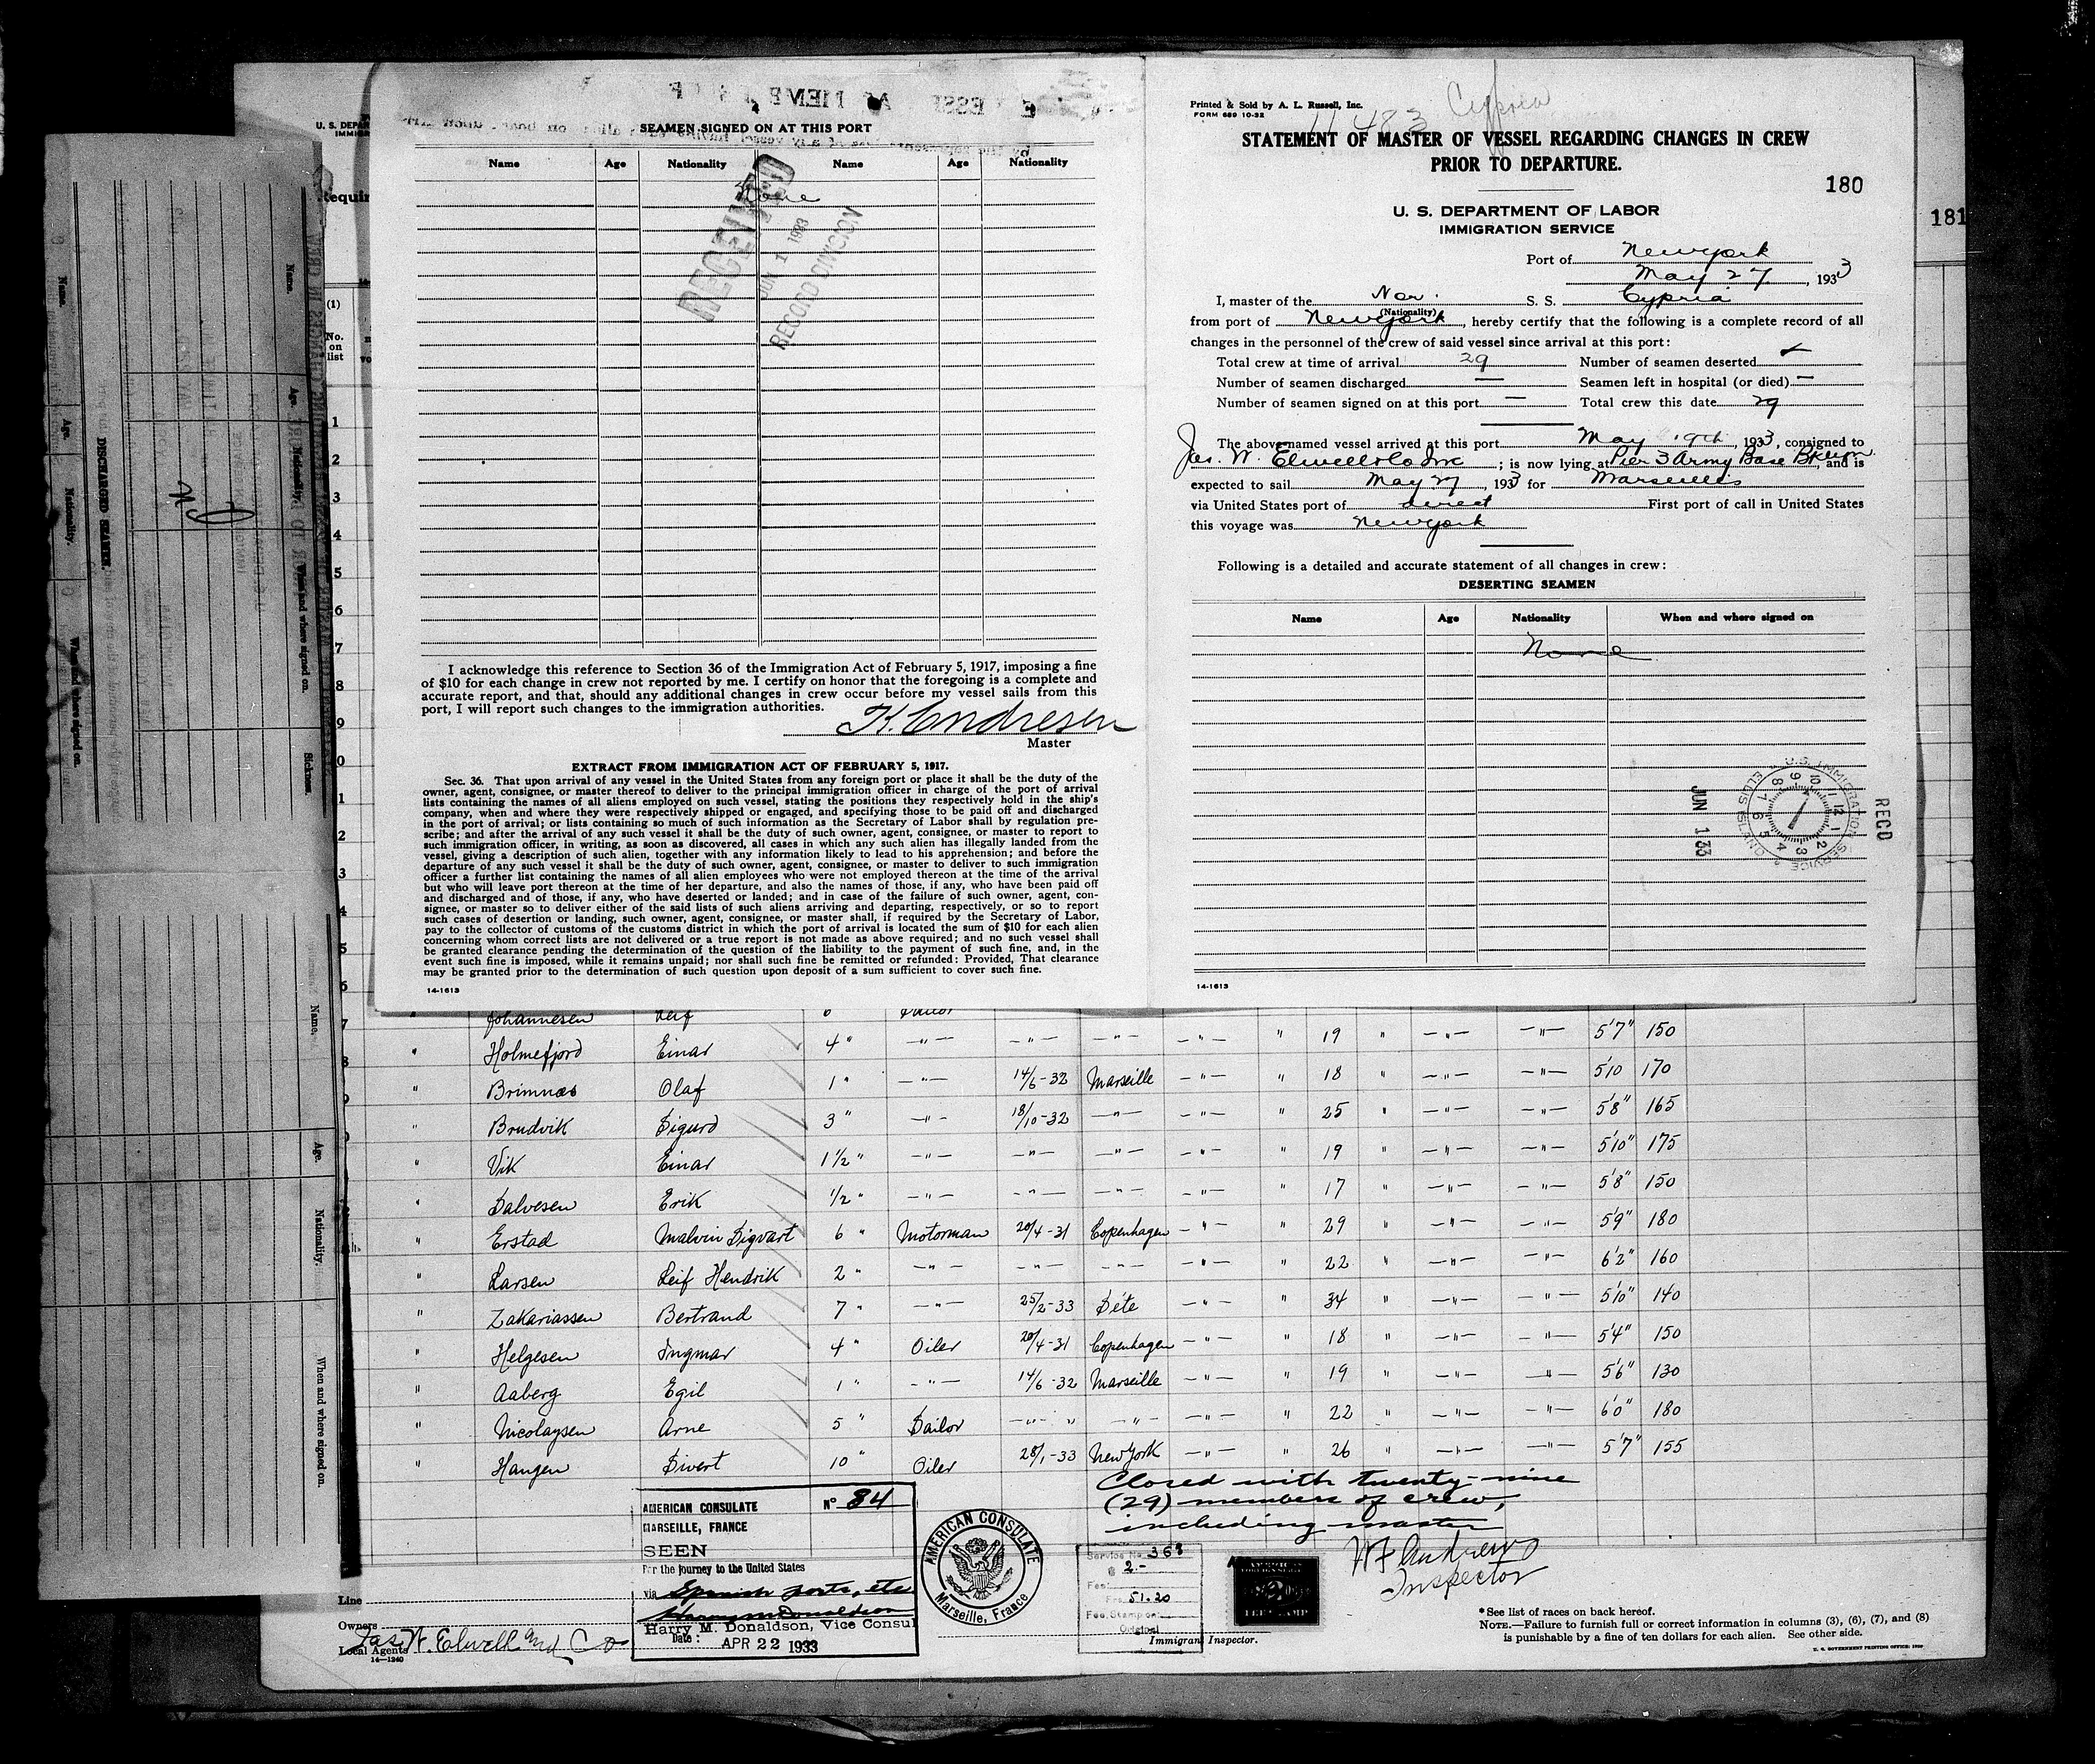 SEAMEN SIGNED ON AT THIS PORT
Name Age Nationality Name Age Nationality
None
RECEIVED
JUN 1 1933
RECORD DIVISION
I acknowledge this reference to Section 36 of the Immigration Act of February 5, 1917, imposing a fine
of $10 for each change in crew not reported by me. I certify on honor that the foregoing is a complete and
accurate report, and that, should any additional changes in crew occur before my vessel sails from this
port, I will report such changes to the immigration authorities.
K. Endresen
Master
EXTRACT FROM IMMIGRATION ACT OF FEBRUARY 5, 1917.
Sec. 36. That upon arrival of any vessel in the United States from any foreign port or place it shall be the duty of the
owner, agent, consignee, or master thereof to deliver to the principal immigration officer in charge of the port of arrival
lists containing the names of all aliens employed on such vessel, stating the positions they respectively hold in the ship's
company, when and where they were respectively shipped or engaged, and specifying those to be paid off and discharged
in the port of arrival; or lists containing so much of such information as the Secretary of Labor shall by regulation pre-
scribe; and after the arrival of any such vessel it shall be the duty of such owner, agent, consignee, or master to report to
such immigration officer, in writing, as soon as discovered, all cases in which any such alien has illegally landed from the
vessel, giving a description of such alien, together with any information likely to lead to his apprehension; and before the
departure of any such vessel it shall be the duty of such owner, agent, consignee, or master to deliver to such immigration
officer a further list containing the names of all alien employees who were not employed thereon at the time of the arrival
but who will leave port thereon at the time of her departure, and also the names of those, if any, who have been paid off
and discharged and of those, if any, who have deserted or landed; and in case of the failure of such owner, agent, con-
signee, or master so to deliver either of the said lists of such aliens arriving and departing, respectively, or so to report
such cases of desertion or landing, such owner, agent, consignee, or master shall, if required by the Secretary of Labor,
pay to the collector of customs of the customs district in which the port of arrival is located the sum of $10 for each alien
concerning whom correct lists are not delivered or a true report is not made as above required; and no such vessel shall
be granted clearance pending the determination of the question of the liability to the payment of such fine, and, in the
event such fine is imposed, while it remains unpaid; nor shall such fine be remitted or refunded: Provided, That clearance
may be granted prior to the determination of such question upon deposit of a sum sufficient to cover such fine.
14-1613
Printed & Sold by A. L. Russell, Inc.
FORM 689 10-32
11483 Cypria
STATEMENT OF MASTER OF VESSEL REGARDING CHANGES IN CREW
PRIOR TO DEPARTURE.
180
181
U. S. DEPARTMENT OF LABOR
IMMIGRATION SERVICE
Port of New York
May 27, 1933
I, master of the Nor. S. S. Cypria
(Nationality)
from port of New York, hereby certify that the following is a complete record of all
changes in the personnel of the crew of said vessel since arrival at this port:
Total crew at time of arrival 29 Number of seamen deserted —
Number of seamen discharged — Seamen left in hospital (or died) —
Number of seamen signed on at this port — Total crew this date 29
The above named vessel arrived at this port May 19th, 1933, consigned to
Jas. W. Elwell & Co Inc; is now lying at Pier 3 Army Base Bklyn, and is
expected to sail May 27, 1933 for Marseilles
via United States port of direct First port of call in United States
this voyage was New York
Following is a detailed and accurate statement of all changes in crew:
DESERTING SEAMEN
Name Age Nationality When and where signed on
None
RECD
U.S. IMMIGRATION SERVICE ELLIS ISL. N.Y.
JUN 1 33
14-1613
Johannesen Leif Sailor
" Holmefjord Einar 4 " —"— —"— —"— —"— " 19 " —"— —"— 5'7" 150
" Brimnes Olaf 1 " —"— 14/6-32 Marseille —"— " 18 " —"— —"— 5'10 170
" Brudvik Sigurd 3 " —"— 18/10-32 —"— —"— " 25 " —"— —"— 5'8" 165
" Vik Einar 1 1/2 " —"— —"— —"— —"— " 19 " —"— —"— 5'10" 175
" Salvesen Erik 1/2 " —"— —"— —"— —"— " 17 " —"— —"— 5'8" 150
" Erstad Malvin Sigvart 6 " Motorman 20/4-31 Copenhagen —"— " 29 " —"— —"— 5'9" 180
" Larsen Leif Hendrik 2 " —"— —"— —"— —"— " 22 " —"— —"— 6'2" 160
" Zakariassen Bertrand 7 " —"— 25/2-33 Sète —"— " 34 " —"— —"— 5'10" 140
" Helgesen Ingmar 4 " Oiler 20/4-31 Copenhagen —"— " 18 " —"— —"— 5'4" 150
" Aaberg Egil 1 " —"— 14/6-32 Marseille —"— " 19 " —"— —"— 5'6" 130
" Nicolaysen Arne 5 " Sailor —"— " —"— —"— " 22 " —"— —"— 6'0" 180
" Haugen Sivert 10 " Oiler 28/1-33 New York —"— " 26 " —"— —"— 5'7" 155
Closed with twenty-nine
(29) members of crew,
including master
W F Andrews
Inspector
AMERICAN CONSULATE No 84
MARSEILLE, FRANCE
SEEN
For the journey to the United States
via Spanish ports, etc
Harry M Donaldson
Harry M. Donaldson, Vice Consul
Date: APR 22 1933
AMERICAN CONSULATE
Marseille, France
Service No. 368
@ 2.-
Fee:
Frs. 51.20
Fee Stamp on
Original
Immigrant Inspector.
Line
Owners
Local Agents Jas W. Elwell and Co
14—1240
*See list of races on back hereof.
NOTE.—Failure to furnish full or correct information in columns (3), (6), (7), and (8)
is punishable by a fine of ten dollars for each alien. See other side.
U. S. GOVERNMENT PRINTING OFFICE
DISCHARGED SEAMEN.
Name. Age. Nationality. When and where signed on.
Name. Age. Nationality. When and where signed on. Sickness.
Name. Age. Nationality. When and where signed on.